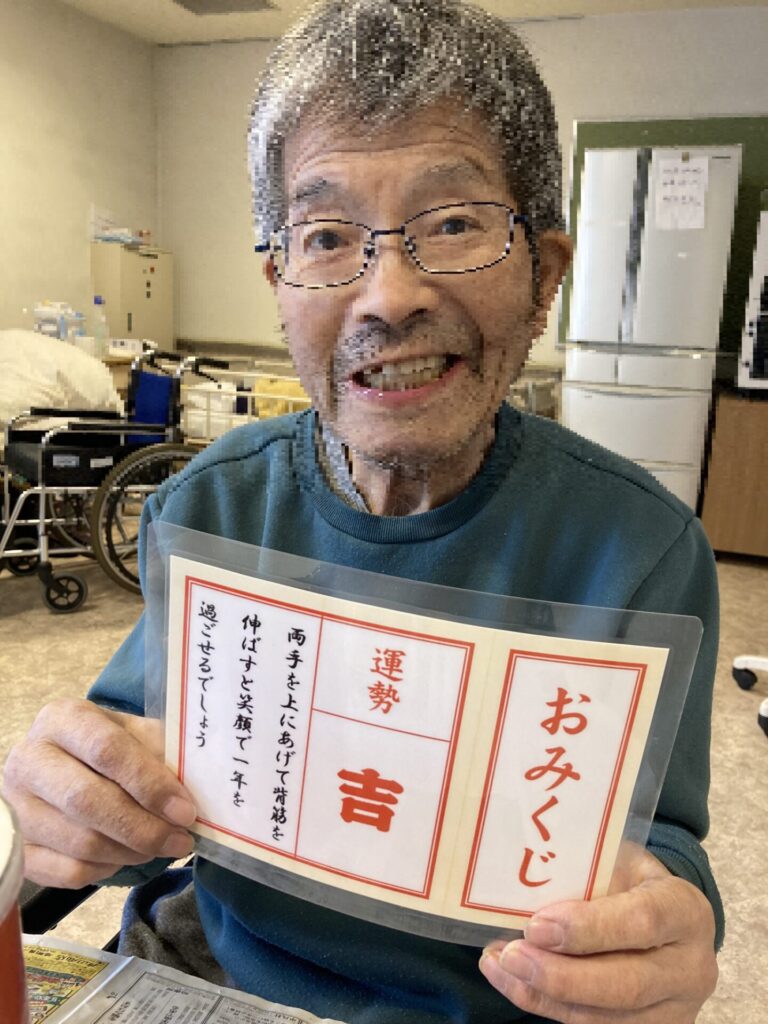 おみくじ
運勢
吉
両手を上にあげて背筋を
伸ばすと笑顔で一年を
過ごせるでしょう